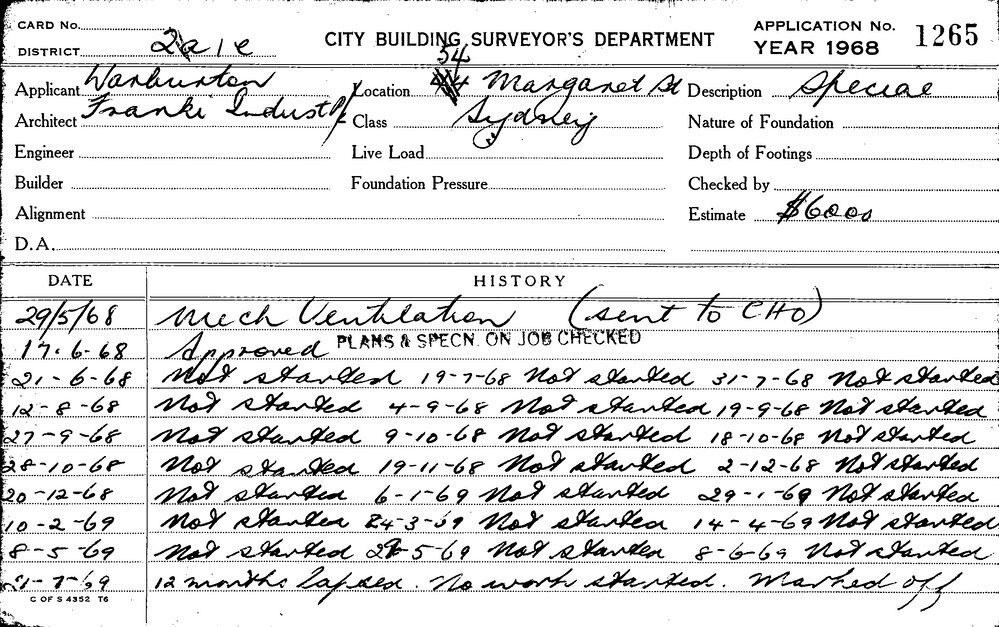 CARD No.
DISTRICT
CITY BUILDING SURVEYOR'S DEPARTMENT
APPLICATION No. 1265
YEAR 1968
Applicant Warburton
Location 54 Margaret St
Description Special
Architect Franki Indust P/L
Class Sydney
Nature of Foundation
Engineer
Live Load
Depth of Footings
Builder
Foundation Pressure
Checked by
Alignment
Estimate $6000
D.A.
DATE HISTORY
29/5/68 Mech Ventilation (sent to CHO)
17-6-68 Approved PLANS & SPECN. ON JOB CHECKED
21-6-68 Not started 19-7-68 Not started 31-7-68 Not started
12-8-68 Not started 4-9-68 Not started 19-9-68 Not started
27-9-68 Not started 9-10-68 Not started 18-10-68 Not started
28-10-68 Not started 19-11-68 Not started 2-12-68 Not started
20-12-68 Not started 6-1-69 Not started 29-1-69 Not started
10-2-69 Not started 24-3-69 Not started 14-4-69 Not started
8-5-69 Not started 5-69 Not started 8-6-69 Not started
12 months lapsed. No work started. Marked off
C OF S 4352 T6